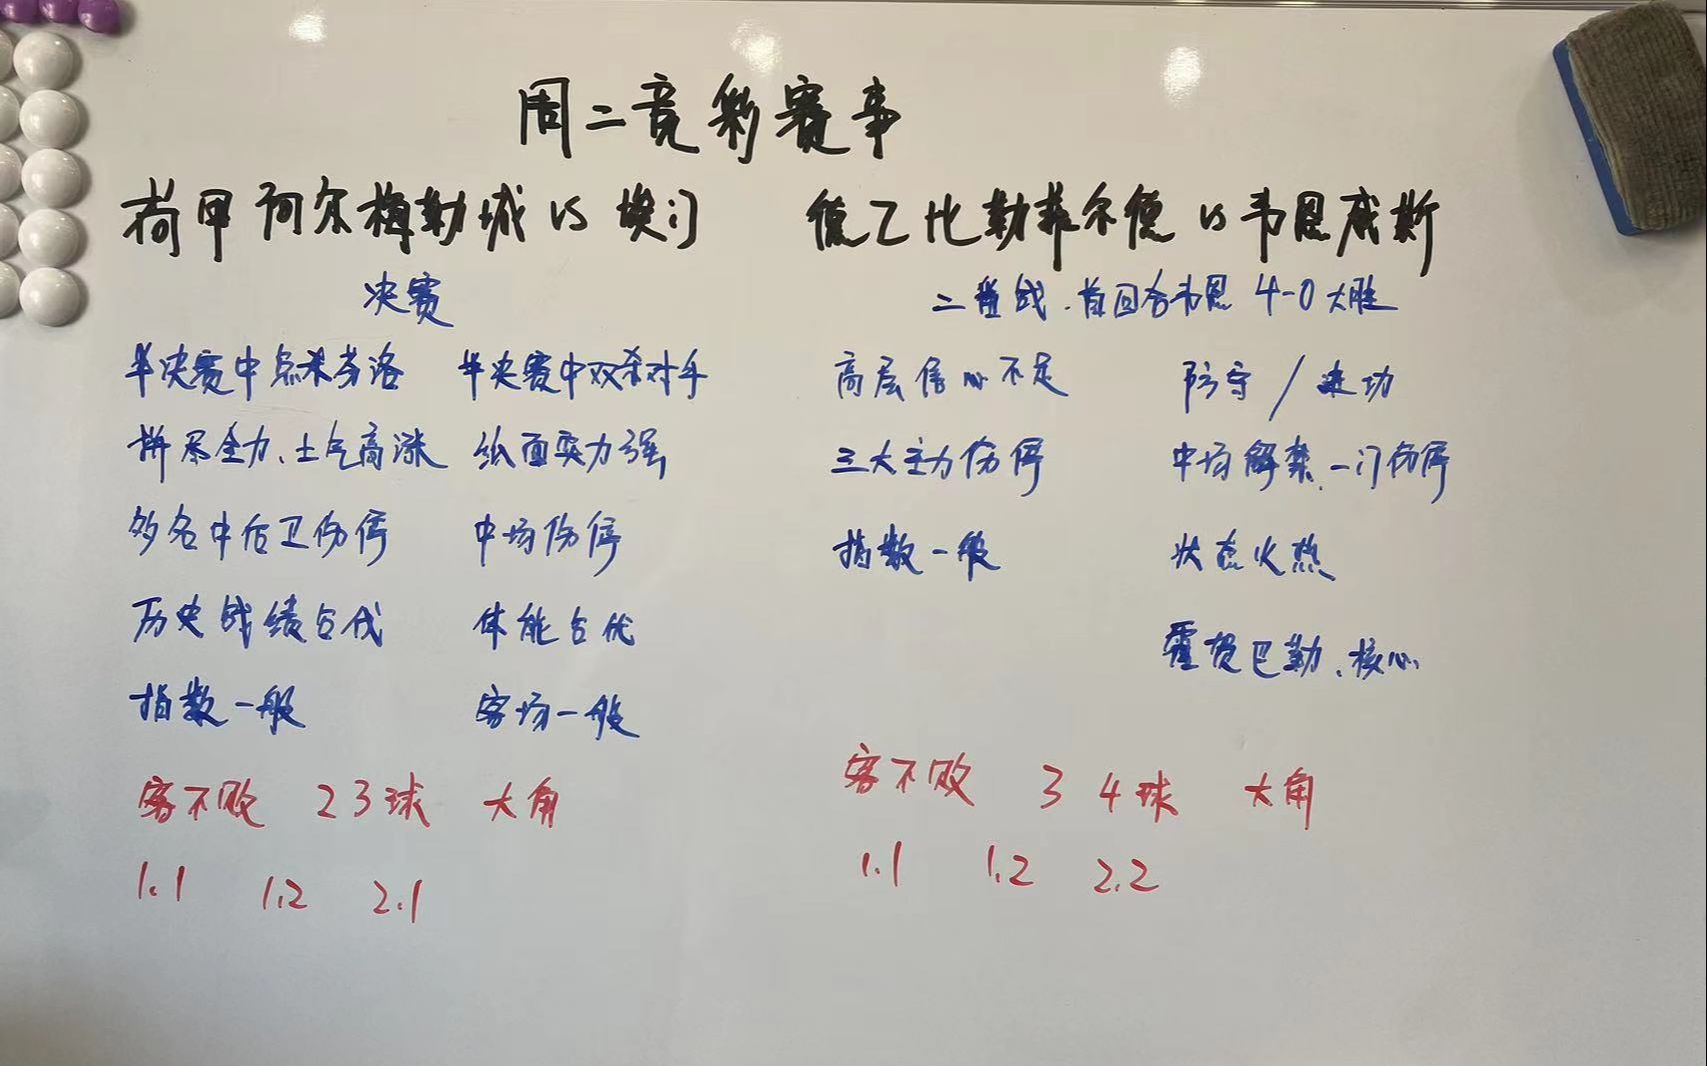 周二竞彩赛事
荷甲 阿尔梅勒城 VS 埃门
决赛
半决赛中点杀芬洛 半决赛中双杀对手
拼尽全力、士气高涨 纸面实力强
多名中后卫伤停 中场伤停
历史战绩占优 体能占优
指数一般 客场一般
客不败 2 3球 大角
1.1 1.2 2.1
德乙 比勒菲尔德 VS 韦恩威斯
二番战.首回合韦恩 4-0 大胜
高层信心不足 防守/进功
三大主力伤停 中场解禁、一门伤停
指数一般 状态火热
霍提巴勒、核心
客不败 3 4球 大角
1.1 1.2 2.2